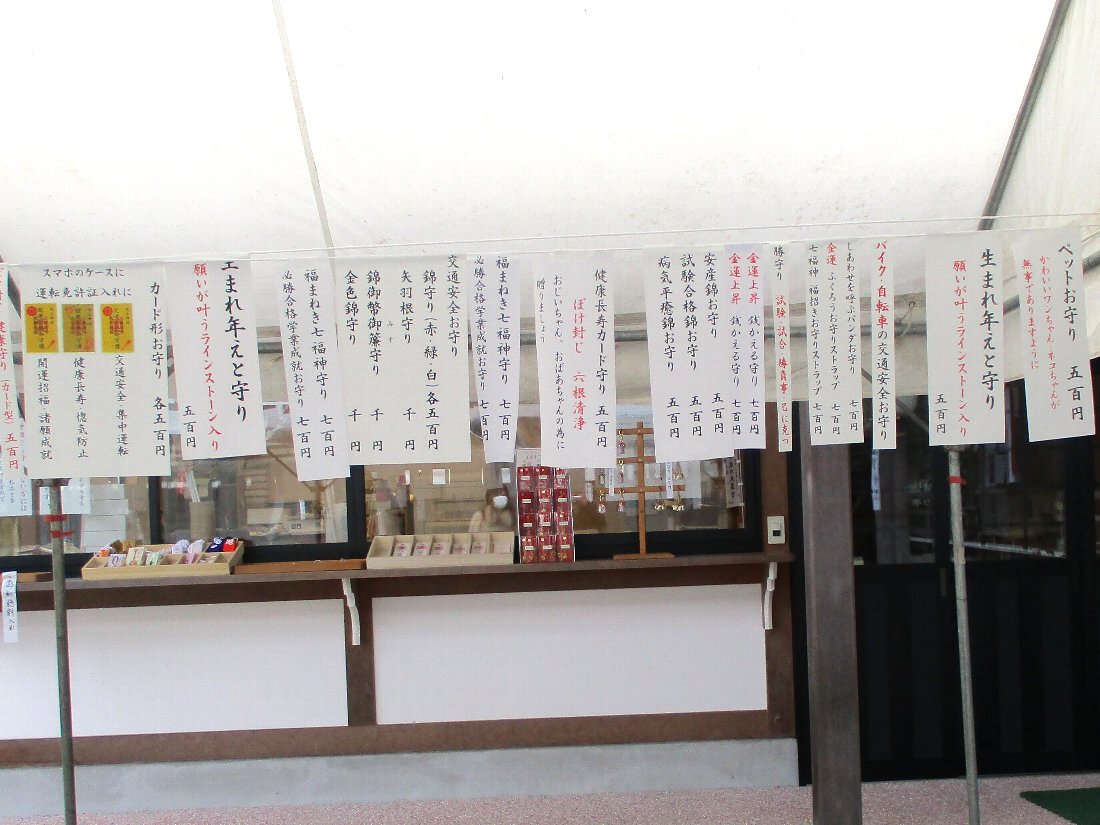 ペットお守り 五百円
かわいいワンちゃん・ネコちゃんが
無事でありますように
生まれ年えと守り
願いが叶うラインストーン入り
五百円
バイク自転車の交通安全お守り
しあわせを呼ぶパンダお守り 七百円
金運 ふくろうお守りストラップ
七福神 福招きお守りストラップ 七百円
勝守り 試験・試合・勝負事・己に克つ
金運上昇 銭かえる守り 七百円
金運上昇 銭かえる守り 七百円
安産錦お守り 五百円
試験合格錦お守り 五百円
病気平癒錦お守り 五百円
健康長寿カード守り 五百円
ぼけ封じ 六根清浄
おじいちゃん、おばあちゃんの為に
贈りましょう
福まねき七福神守り 七百円
必勝合格学業成就お守り 七百円
交通安全お守り
錦守り(赤・緑・白)各五百円
矢羽根守り 千円
錦御幣御簾守り 千円
みす
金色錦守り 千円
福まねき七福神守り 七百円
必勝合格学業成就お守り 七百円
生まれ年えと守り
願いが叶うラインストーン入り
五百円
カード形お守り 各五百円
スマホのケースに
運転免許証入れに
交通安全 集中運転
健康長寿 惚気防止
開運招福 諸願成就
健康守り(カード型)五百円